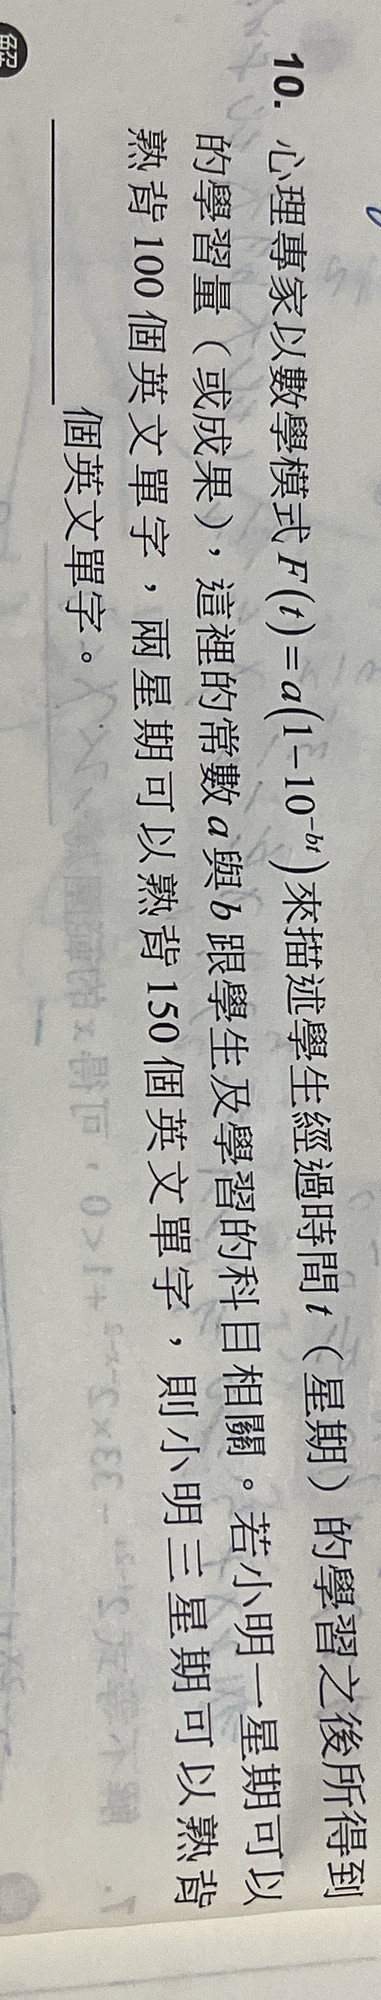 10. 心理專家以數學模式 F(t)=a(1-10^{-bt})來描述學生經過時間 t（星期）的學習之後所得到
的學習量（或成果），這裡的常數 a 與 b 跟學生及學習的科目相關。若小明一星期可以
熟背 100 個英文單字，兩星期可以熟背 150 個英文單字，則小明三星期可以熟背
＿＿＿＿＿＿個英文單字。
解